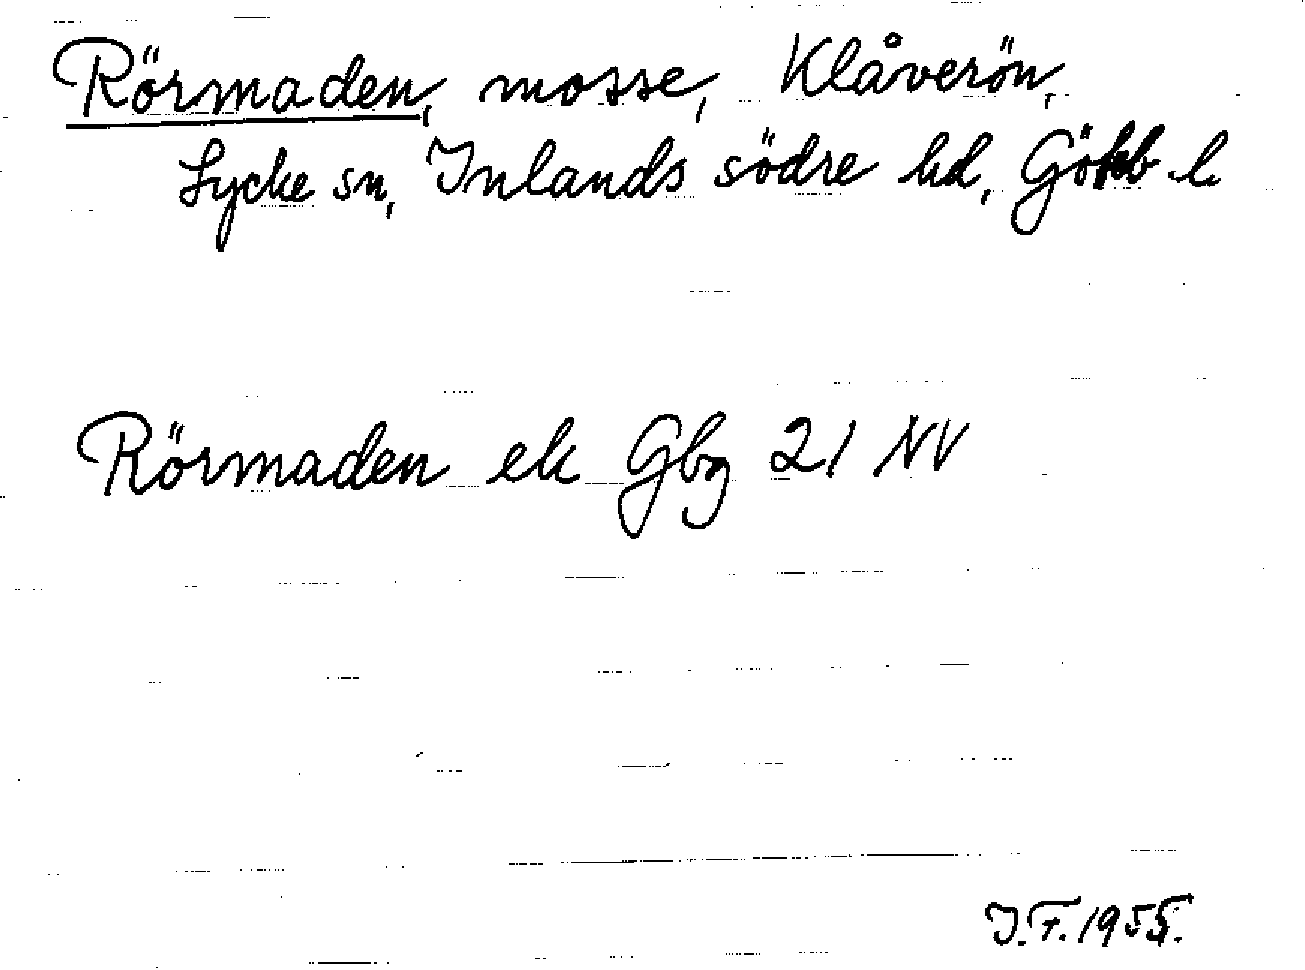 Rörmaden, mosse, Klåverön,
Lycke sn, Inlands södre hd, Götb l.
Rörmaden ek Gbg 21 NV
J.F. 1955.